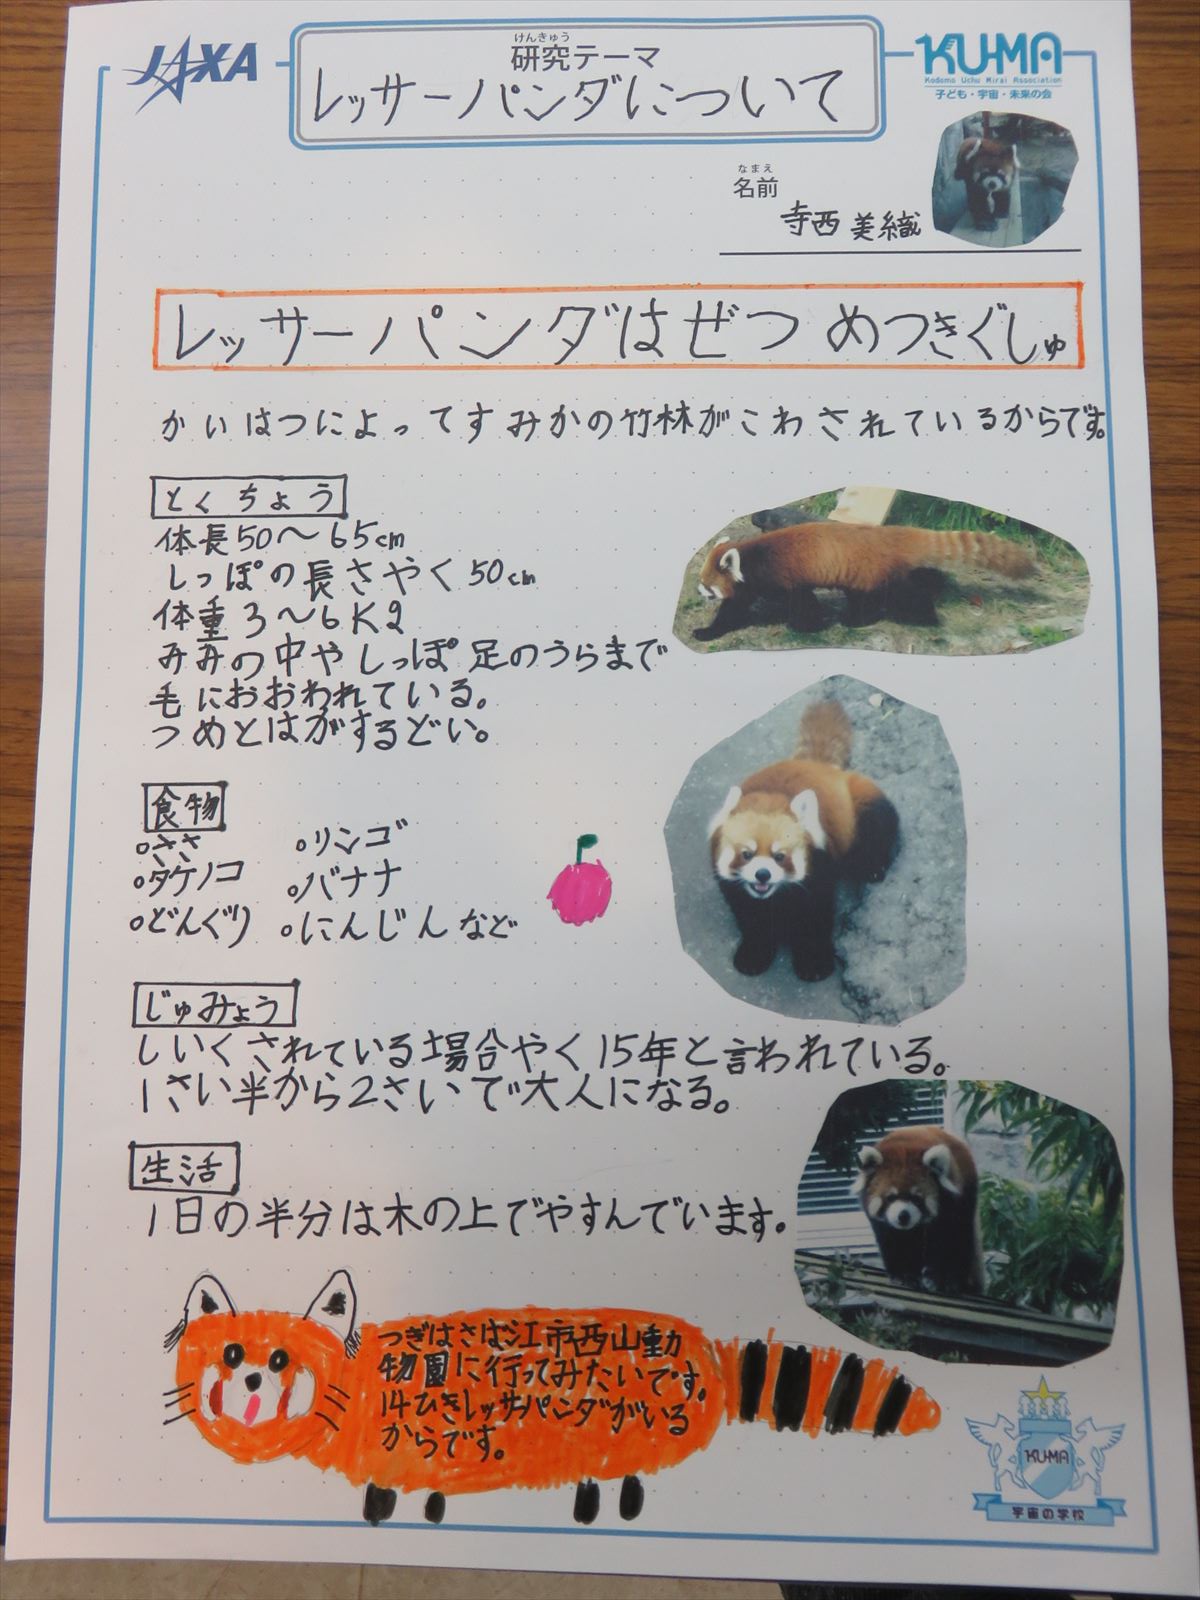 JAXA
けんきゅう
研究テーマ
レッサーパンダについて
KU-MA
Kodomo Uchu Mirai Association
子ども・宇宙・未来の会
なまえ
名前
寺西 美織
レッサーパンダはぜつめつきぐしゅ
かいはつによってすみかの竹林がこわされているからです。
とくちょう
体長50〜65cm
しっぽの長さやく50cm
体重3〜6Kg
みみの中やしっぽ足のうらまで
毛におおわれている。
つめとはがするどい。
食物
○ささ ○リンゴ
○タケノコ ○バナナ
○どんぐり ○にんじんなど
じゅみょう
しいくされている場合やく15年と言われている。
1さい半から2さいで大人になる。
生活
1日の半分は木の上でやすんでいます。
つぎはさば江市西山動
物園に行ってみたいです。
14ひきレッサーパンダがいる
からです。
KU-MA
宇宙の学校